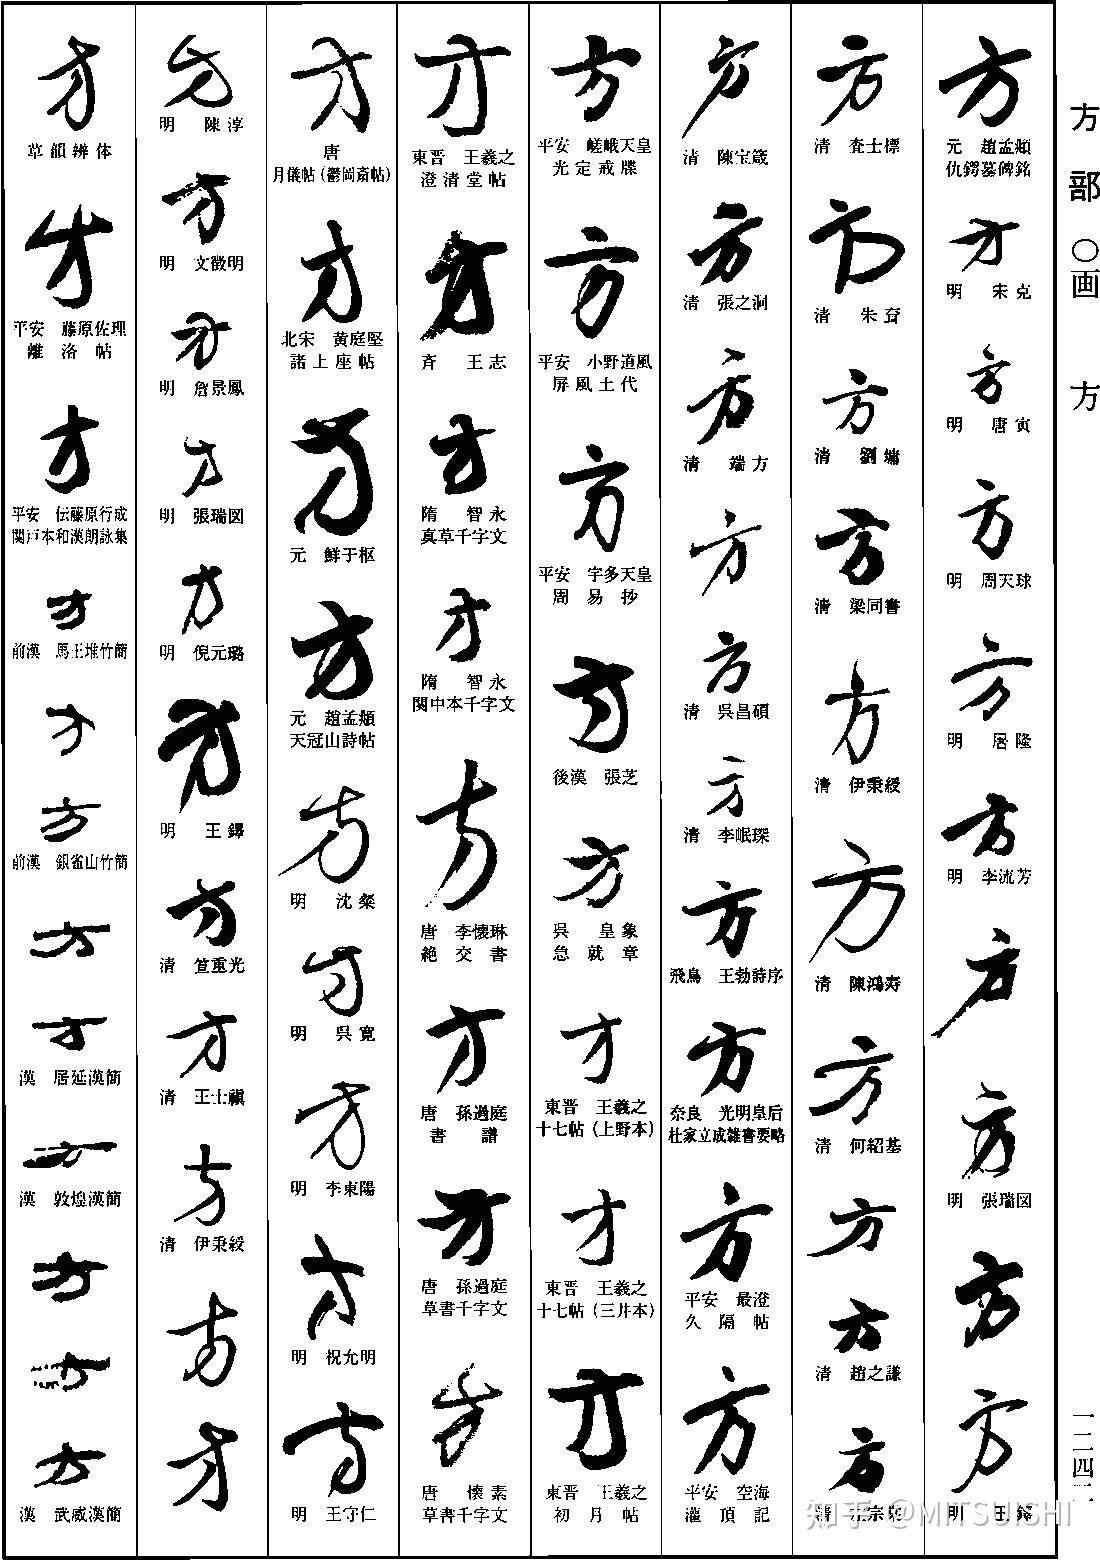 方部 ○画 方
一二四二
方
元 趙孟頫
仇鍔墓碑銘
方
明 宋克
方
明 唐寅
方
明 周天球
方
明 屠隆
方
明 李流芳
方
方
明 張瑞図
方
方
明 王鐸
方
清 査士標
方
清 朱耷
方
清 劉墉
方
清 梁同書
方
清 伊秉綬
方
清 陳鴻寿
方
清 何紹基
方
方
清 趙之謙
方
方
清 陳宝箴
方
清 張之洞
方
清 端方
方
方
清 呉昌碩
方
清 李岷琛
方
飛鳥 王勃詩序
方
奈良 光明皇后
杜家立成雑書要略
方
平安 最澄
久隔帖
方
平安 空海
灌頂記
方
平安 嵯峨天皇
光定戒牒
方
平安 小野道風
屏風土代
方
平安 宇多天皇
周易抄
方
後漢 張芝
方
呉 皇象
急就章
方
東晋 王羲之
十七帖(上野本)
方
東晋 王羲之
十七帖(三井本)
方
東晋 王羲之
初月帖
方
東晋 王羲之
澄清堂帖
方
斉 王志
方
隋 智永
真草千字文
方
隋 智永
関中本千字文
方
唐 李懐琳
絶交書
方
唐 孫過庭
書譜
方
唐 孫過庭
草書千字文
方
唐 懐素
草書千字文
方
唐
月儀帖(鬱岡斎帖)
方
北宋 黄庭堅
諸上座帖
方
元 鮮于枢
方
元 趙孟頫
天冠山詩帖
方
明 沈粲
方
明 呉寛
方
明 李東陽
方
明 祝允明
方
明 王守仁
方
明 陳淳
方
明 文徴明
方
明 詹景鳳
方
明 張瑞図
方
明 倪元璐
方
明 王鐸
方
清 笪重光
方
清 王士禛
方
清 伊秉綬
方
方
方
草韻辨体
方
平安 藤原佐理
離洛帖
方
平安 伝藤原行成
関戸本和漢朗詠集
方
前漢 馬王堆竹簡
方
方
前漢 銀雀山竹簡
方
方
漢 居延漢簡
方
漢 敦煌漢簡
方
方
方
漢 武威漢簡
知乎 @MITSUISHI